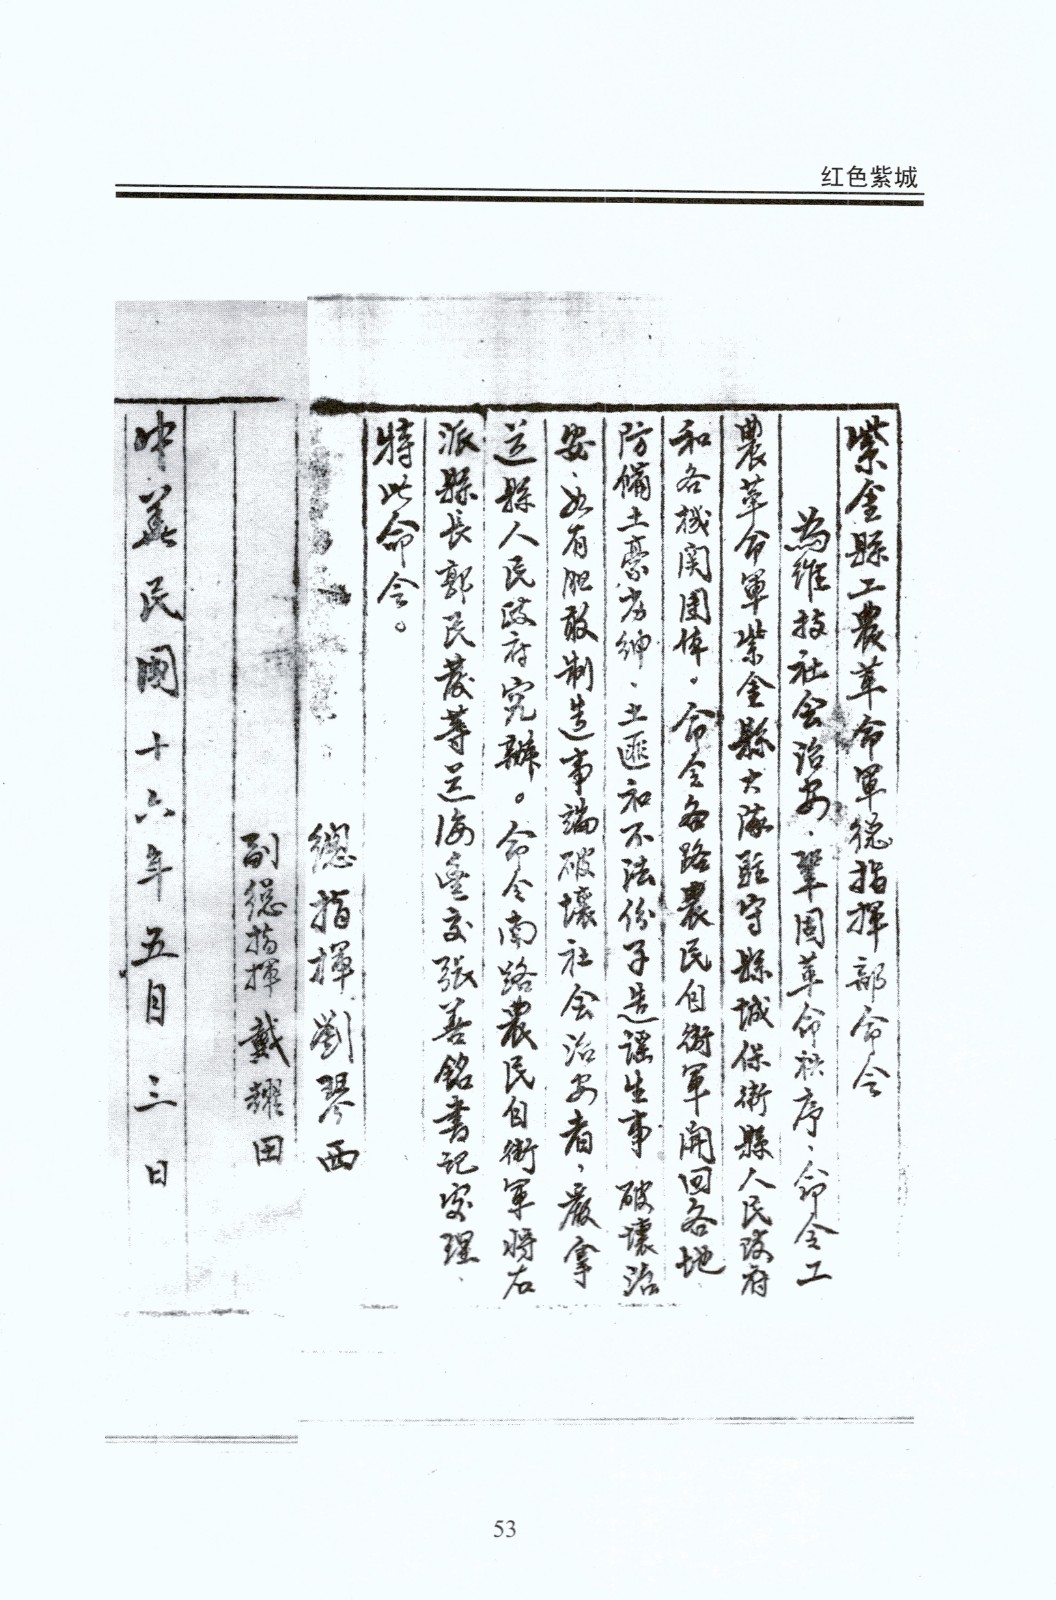 红色紫城
紫金縣工農革命軍总指揮部命令
為維技社会治安，鞏固革命秩序，命令工
農革命軍紫金縣大隊駐守縣城保衛縣人民政府
和各機関団体。命令各路農民自衛軍開回各地
防備土豪劣绅、土匪和不法份子造谣生事破壞治
安，如有胆敢制造事端破壞社会治安者，嚴拿
送縣人民政府究辦。命令南路農民自衛軍將右
派縣長郭民發等送海豐交張善銘書記處理，
特此命令。
總指揮劉琴西
副總指揮戴耀田
中華民國十六年五月三日
53